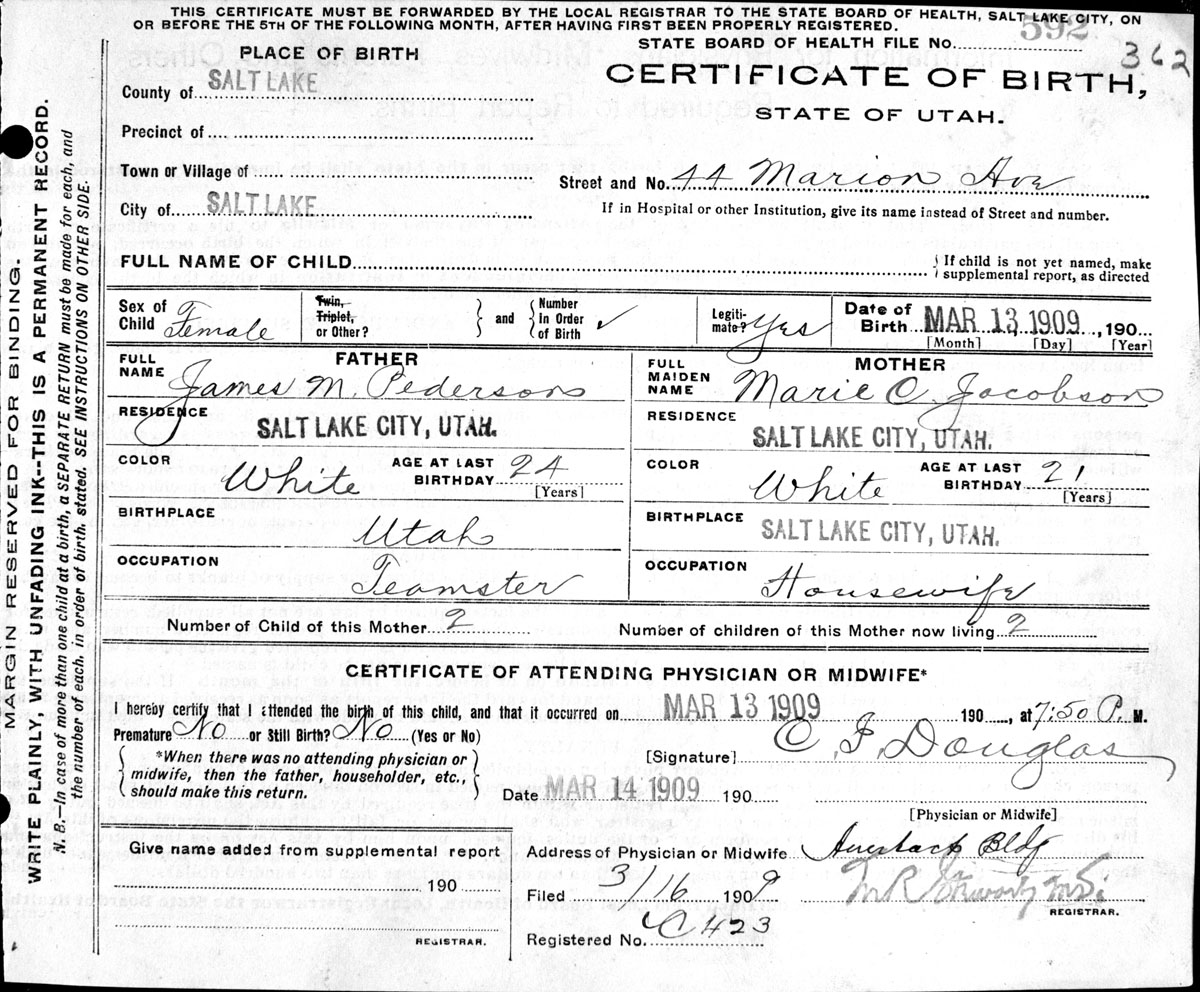 THIS CERTIFICATE MUST BE FORWARDED BY THE LOCAL REGISTRAR TO THE STATE BOARD OF HEALTH, SALT LAKE CITY, ON
OR BEFORE THE 5TH OF THE FOLLOWING MONTH, AFTER HAVING FIRST BEEN PROPERLY REGISTERED.
MARGIN RESERVED FOR BINDING.
WRITE PLAINLY, WITH UNFADING INK--THIS IS A PERMANENT RECORD.
N. B.—In case of more than one child at a birth, a SEPARATE RETURN must be made for each, and
the number of each, in order of birth, stated. SEE INSTRUCTIONS ON OTHER SIDE.
PLACE OF BIRTH
STATE BOARD OF HEALTH FILE No. 592
362
County of SALT LAKE
CERTIFICATE OF BIRTH,
STATE OF UTAH.
Precinct of
Town or Village of
Street and No. 44 Marion Ave
City of SALT LAKE
If in Hospital or other Institution, give its name instead of Street and number.
FULL NAME OF CHILD
If child is not yet named, make
supplemental report, as directed
Sex of Child Female
Twin, Triplet, or Other?
and
Number In Order of Birth ✓
Legitimate? Yes
Date of Birth MAR 13 1909, 190
[Month] [Day] [Year]
FATHER
FULL NAME James M. Pederson
MOTHER
FULL MAIDEN NAME Marie C. Jacobson
RESIDENCE SALT LAKE CITY, UTAH.
RESIDENCE SALT LAKE CITY, UTAH.
COLOR White AGE AT LAST BIRTHDAY 24 [Years]
COLOR White AGE AT LAST BIRTHDAY 21 [Years]
BIRTHPLACE Utah
BIRTHPLACE SALT LAKE CITY, UTAH.
OCCUPATION Teamster
OCCUPATION Housewife
Number of Child of this Mother 2
Number of children of this Mother now living 2
CERTIFICATE OF ATTENDING PHYSICIAN OR MIDWIFE*
I hereby certify that I attended the birth of this child, and that it occurred on MAR 13 1909 190, at 7:50 P. M.
Premature No or Still Birth? No (Yes or No)
*When there was no attending physician or
midwife, then the father, householder, etc.,
should make this return.
[Signature] C. F. Douglas
Date MAR 14 1909 190
[Physician or Midwife]
Give name added from supplemental report
190
REGISTRAR.
Address of Physician or Midwife Auerbach Bldg
Filed 3/16 1909
REGISTRAR.
Registered No. C423